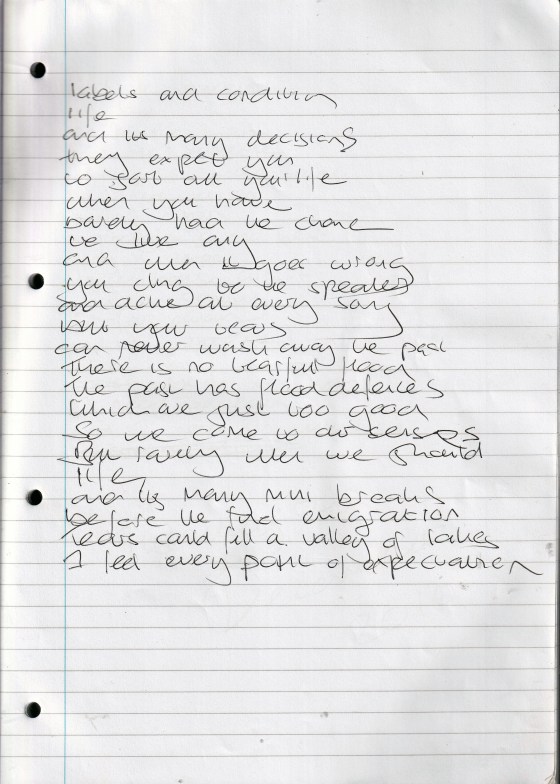 labels and condition
life
and its many decisions
they expect you
to sort out your life
when you have
barely had the chance
to live any
and when it goes wrong
you cling to the speaker
and ache at every song
but your tears
can never wash away the past
there is no tearful flood
the past has flood defences
which are just too good
So we come to our senses
But rarely when we should
life,
and its many mini breaks
before the final emigration
Tears could fill a valley of lakes
I feel every pain of expectation